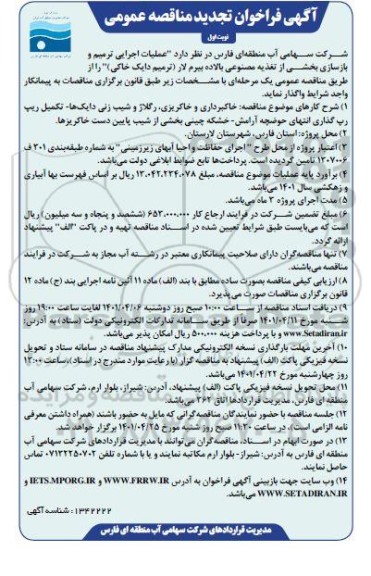 آگهی فراخوان تجدید مناقصه عمومی
نوبت اول
شرکت سهامی آب منطقه‌ای فارس در نظر دارد "عملیات اجرایی ترمیم و
بازسازی بخشی از تغذیه مصنوعی بالاده بیرم لار (ترمیم دایک خاکی)" را از
طریق مناقصه عمومی یک مرحله‌ای با مشخصات زیر طبق قانون برگزاری مناقصات به پیمانکار
واجد شرایط واگذار نماید.
۱) شرح کارهای موضوع مناقصه: خاکبرداری و خاکریزی، رگلاژ و شیب زنی دایک‌ها- تکمیل ریپ
رپ گذاری انتهای حوضچه آرامش- خشکه چینی بخشی از شیب پایین دست خاکریزها.
۲) محل پروژه: استان فارس، شهرستان لارستان.
۳) اعتبار پروژه از محل طرح "اجرای حفاظت و احیا آبهای زیرزمینی" به شماره طبقه‌بندی ۳۰۱ ف
۱۳۰۷۰۰۶ تامین گردیده است. پرداخت‌ها تابع ضوابط ابلاغی دولت می‌باشد.
۴) برآورد پایه عملیات موضوع مناقصه، مبلغ ۱۳.۰۴۲.۲۳۴.۰۷۸ ریال بر اساس فهرست بها آبیاری
و زهکشی سال ۱۴۰۱ می‌باشد.
۵) مدت اجرای پروژه ۳ ماه می‌باشد.
۶) مبلغ تضمین شرکت در فرایند ارجاع کار ۶۵۳.۰۰۰.۰۰۰ (ششصد و پنجاه و سه میلیون) ریال
است که می‌بایست طبق شرایط تعیین شده در اسناد مناقصه تهیه و در پاکت "الف" پیشنهاد
ارائه گردد.
۷) تنها مناقصه‌گران دارای صلاحیت پیمانکاری معتبر در رشته آب مجاز به شرکت در فرایند
مناقصه می‌باشند.
۸) ارزیابی کیفی مناقصه بصورت ساده مطابق با بند (الف) ماده ۱۱ آئین نامه اجرایی بند (ج) ماده ۱۲
قانون برگزاری مناقصات صورت می‌پذیرد.
۹) دریافت اسناد مناقصه از ساعت ۱۰:۰۰ صبح روز دوشنبه ۱۴۰۱/۰۴/۰۶ لغایت ساعت ۱۹:۰۰ روز
شنبه مورخ ۱۴۰۱/۰۴/۱۱ صرفاً از طریق سامانه تدارکات الکترونیکی دولت (ستاد) به آدرس:
www.Setadiran.ir و با پرداخت هزینه ۵۰۰.۰۰۰ ریال امکان پذیر می‌باشد.
۱۰) آخرین مهلت بارگذاری نسخه الکترونیکی مدارک پیشنهاد مناقصه در سامانه ستاد و تحویل
نسخه فیزیکی پاکت (الف) پیشنهاد به مناقصه گزار (با رعایت موارد مندرج در اسناد)، ساعت ۱۳:۰۰
روز چهارشنبه مورخ ۱۴۰۱/۰۴/۲۲ می‌باشد.
۱۱) محل تحویل نسخه فیزیکی پاکت (الف) پیشنهاد، آدرس: شیراز، بلوار ارم، شرکت سهامی آب
منطقه ای فارس، مدیریت قراردادها اتاق ۲۶۲ می‌باشد.
۱۲) جلسه مناقصه با حضور نمایندگان مناقصه‌گرانی که مایل به حضور باشند (همراه داشتن معرفی
نامه الزامی است)، در ساعت ۱۱:۳۰ صبح روز شنبه مورخ ۱۴۰۱/۰۴/۲۵ برگزار خواهد شد.
۱۳) در صورت ابهام در اسناد، مناقصه‌گران می‌توانند با مدیریت قراردادهای شرکت سهامی آب
منطقه ای فارس به آدرس: شیراز- بلوار ارم مکاتبه نمایند و یا با شماره تلفن ۰۷۱۳۲۲۵۰۷۰۲ تماس
حاصل نمایند.
۱۴) وب سایت جهت بازبینی آگهی فراخوان به آدرس WWW.FRRW.IR و IETS.MPORG.IR و
WWW.SETADIRAN.IR می‌باشد.
۱۳۴۲۲۲۲ : شناسه آگهی
مدیریت قراردادهای شرکت سهامی آب منطقه ای فارس